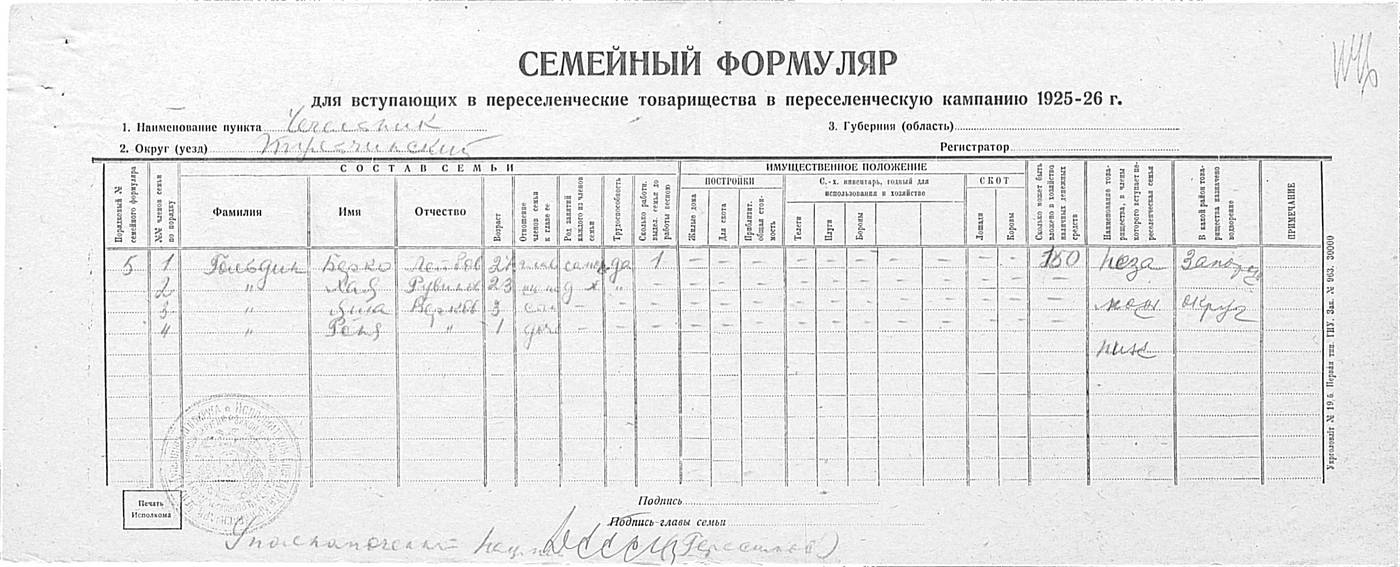 СЕМЕЙНЫЙ ФОРМУЛЯР
для вступающих в переселенческие товарищества в переселенческую кампанию 1925-26 г.
1. Наименование пункта Чечельник
3. Губерния (область)
2. Округ (уезд)
Регистратор
СОСТАВ СЕМЬИ
ИМУЩЕСТВЕННОЕ ПОЛОЖЕНИЕ
Порядковый № семейного формуляра
№№ членов семьи по порядку
Фамилия
Имя
Отчество
Возраст
Отношение членов семьи к главе ее
Род занятий каждого из членов семьи
Трудоспособность
Сколько работн. выдел. семья до работы весною
ПОСТРОЙКИ
Жилые дома
Для скота
Приблизит. общая стоимость
С.-х. инвентарь, годный для использования в хозяйстве
Телеги
Плуги
Бороны
СКОТ
Лошади
Коровы
Сколько может быть вложено в хозяйство наличных денежных средств
Наименование товарищества, в члены которого вступает переселенческая семья
В какой район товарищества назначено водворение
ПРИМЕЧАНИЕ
5 1 Гольдин Берко 27 да 1 – – – – – – – – – – 150
2 " Хая 23 " – – – – – – – – – –
3 " Берков 3 – – – – – – – – – – округ
4 " " 1 – – – – – – – – – –
Печать Исполкома
Подпись
Подпись главы семьи
Укрголовлит № 19.6. Первая тип. ГИУ. Зак. № 963. 30000